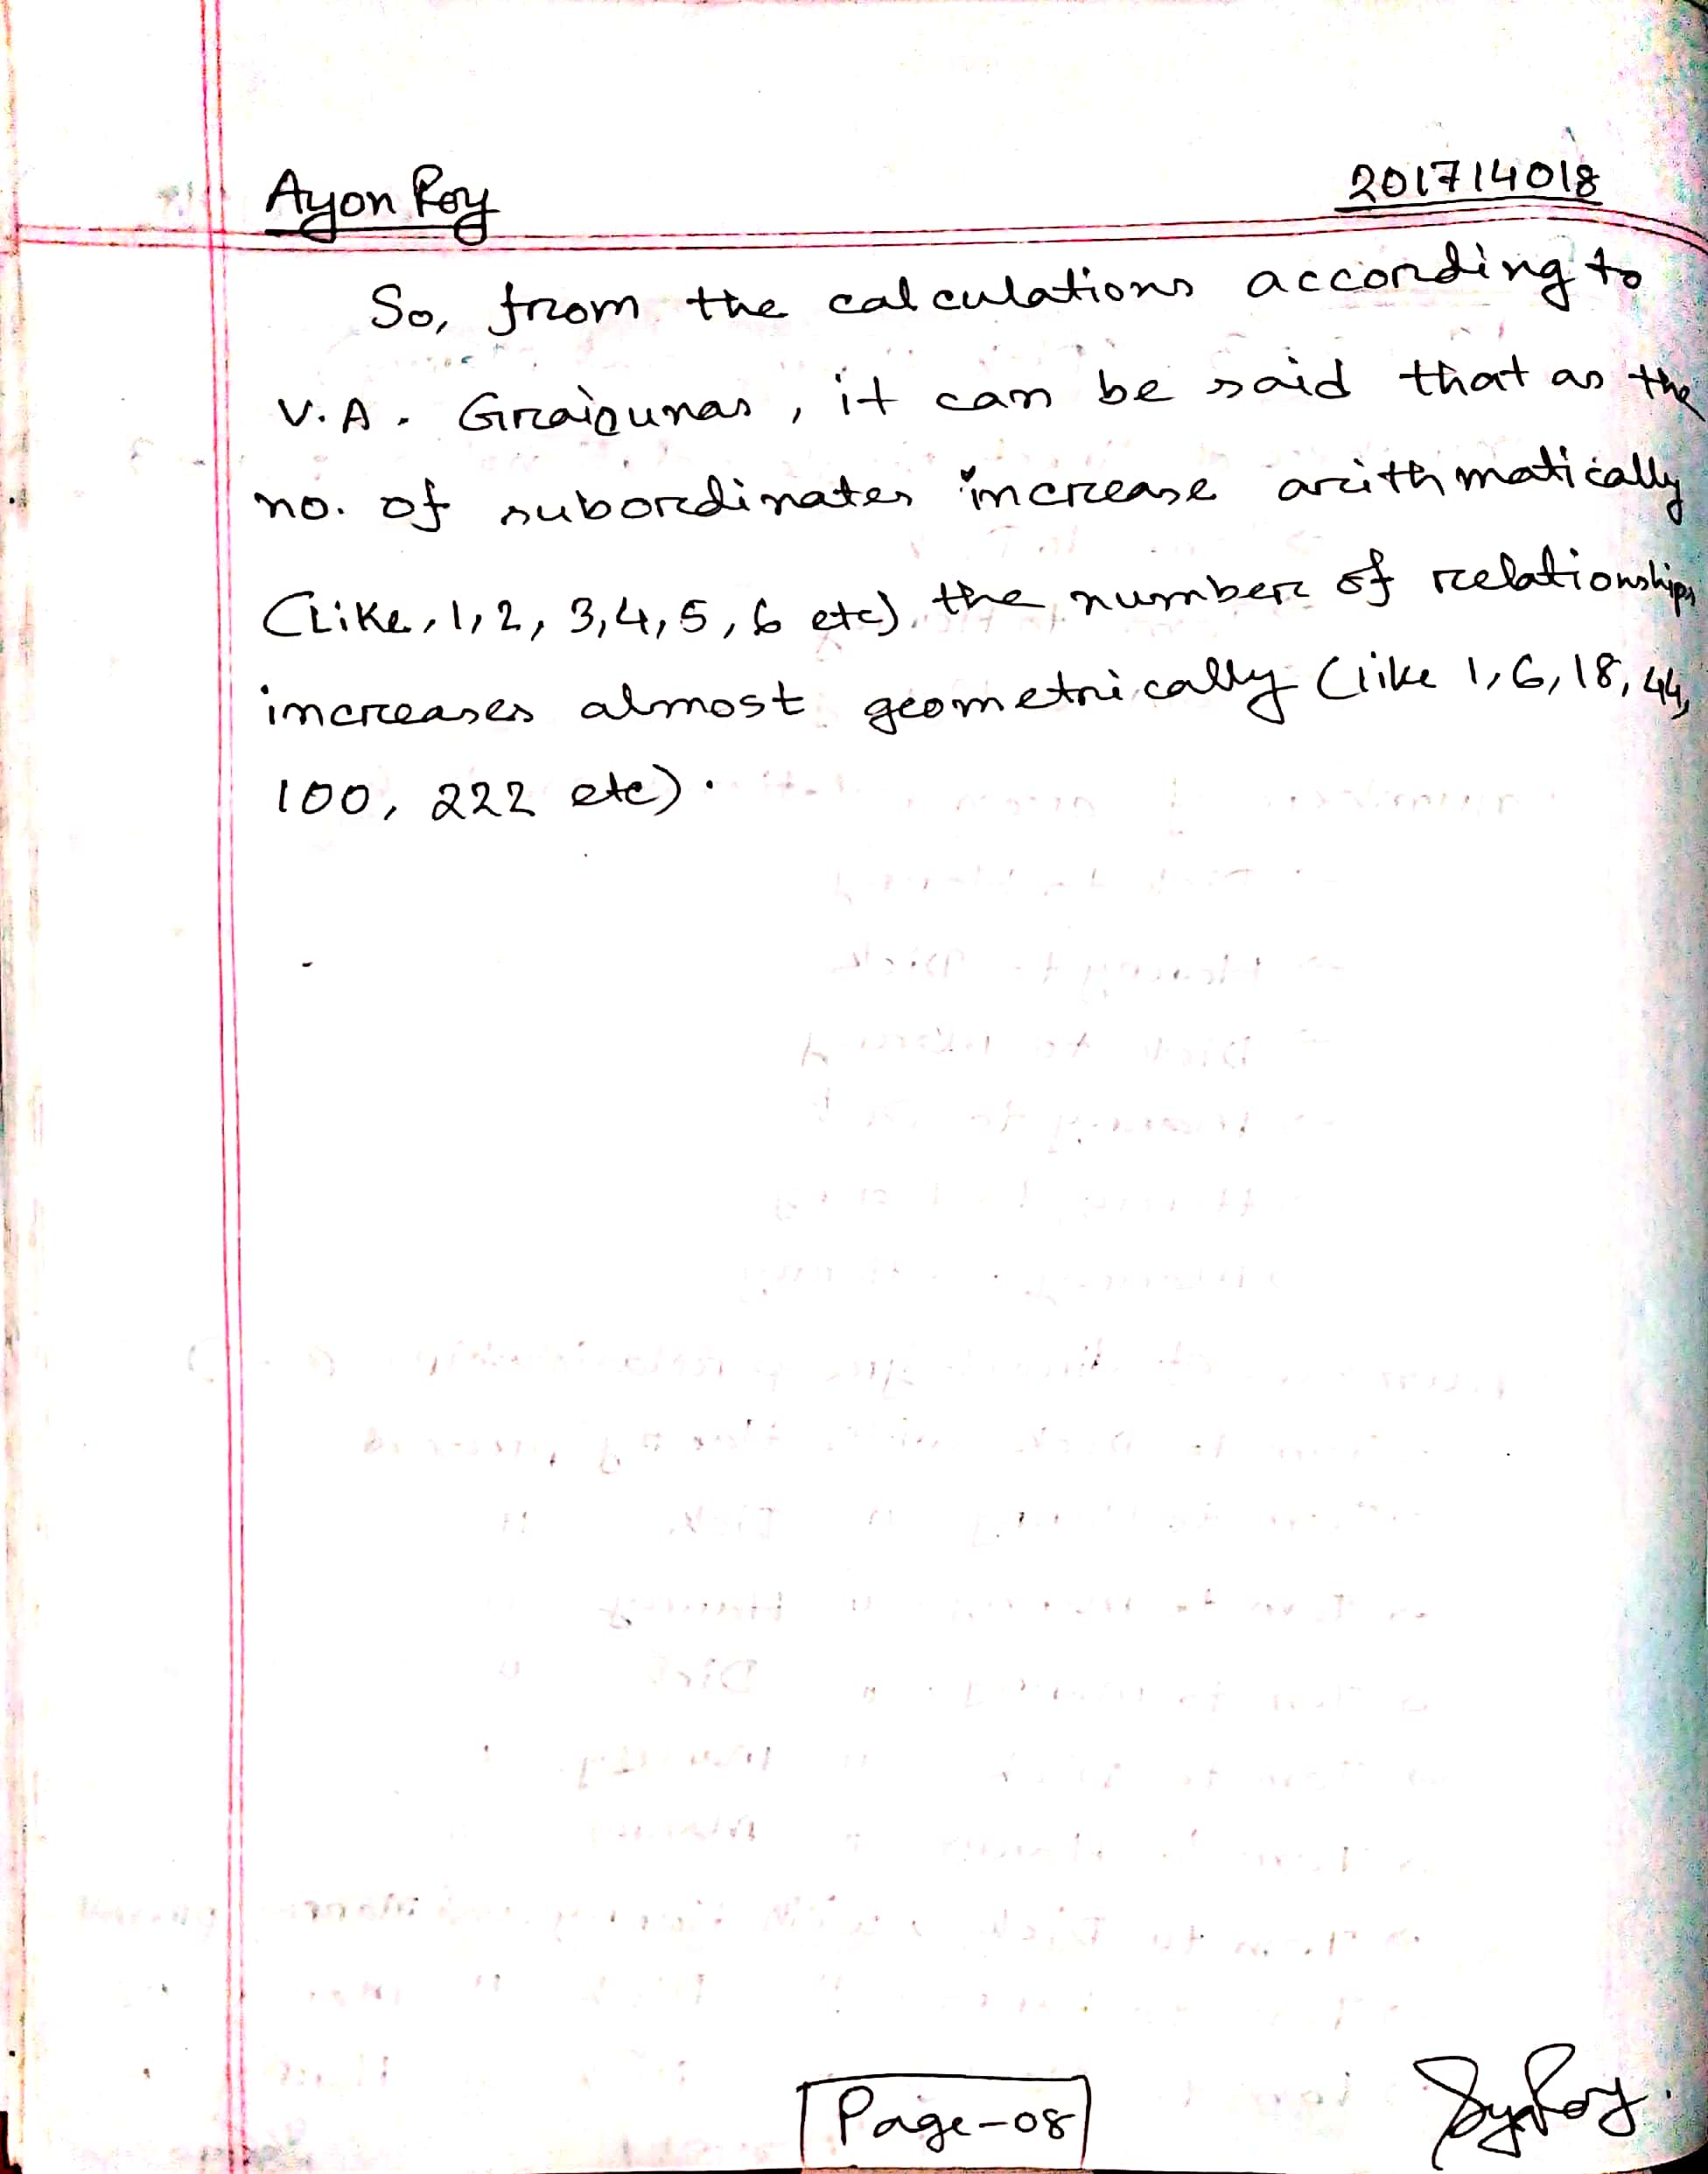 Ayon Roy
201714018
So, from the calculations according to
V.A. Graicunas, it can be said that as the
no. of subordinates increase arithmatically
(Like, 1, 2, 3, 4, 5, 6 etc) the number of relationships
increases almost geometrically (like 1, 6, 18, 44,
100, 222 etc).
Page-08